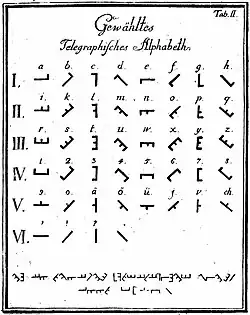 Tab. II.
Gewähltes
Telegraphisches Alphabeth.
a. b. c. d. e. f. g. h.
I.
i. k. l. m. n. o. p. q.
II.
r. s. t. u. w. x. y. z.
III.
1. 2. 3. 4. 5. 6. 7. 8.
IV.
9. 0. ä. ö. ü. ch.
V.
VI.